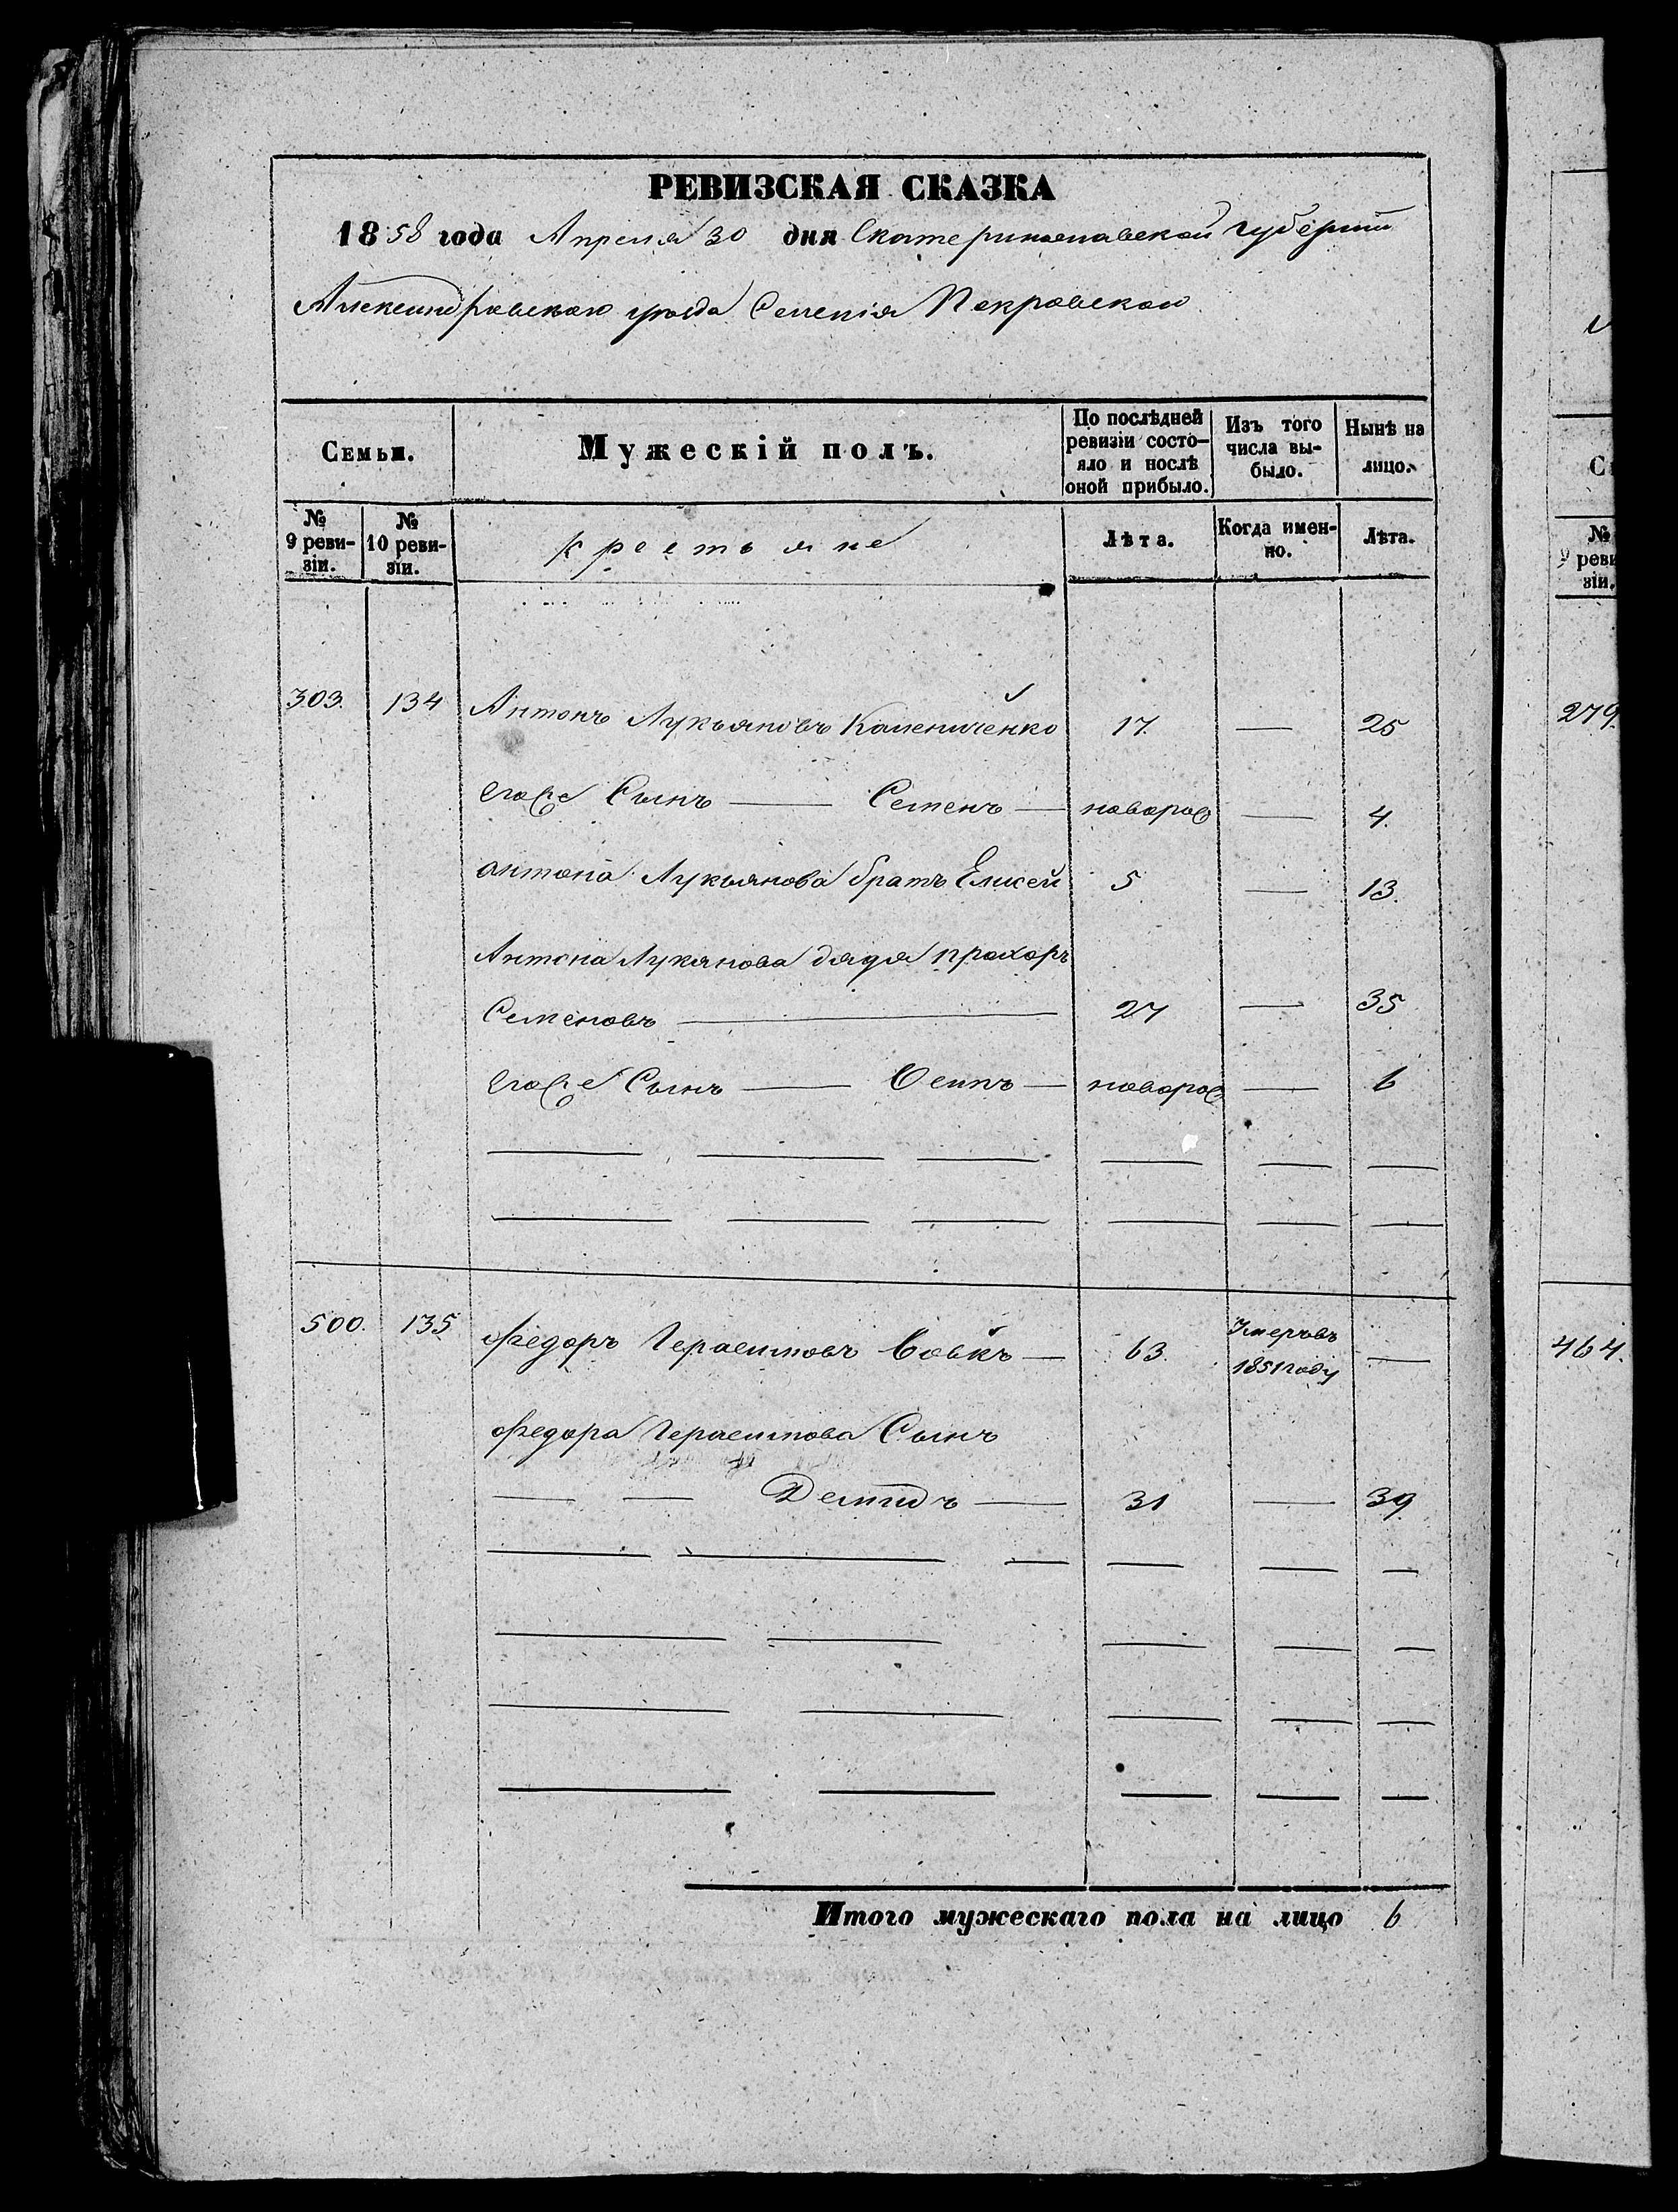 РЕВИЗСКАЯ СКАЗКА
1858 года Апреля 30 дня Екатеринославской губерніи
Александровскаго уезда Селенія Покровскаго
Семьи.
Мужескій полъ.
По послѣдней ревизіи состо-яло и послѣ оной прибыло.
Изъ того числа вы-было.
Нынѣ на лицо.
№ 9 реви-зіи.
№ 10 реви-зіи.
крестьяне
Лѣта.
Когда имен-но.
Лѣта.
303. 134 Антонъ Лукьяновъ Калениченко 17. — 25
его Сынъ — Семенъ — новорож — 4.
антона Лукьянова братъ Елисей 5 — 13.
Антона Лукянова дядя прохоръ
Семеновъ — 27 — 35
его Сынъ — Осипъ — новорож — 6
500. 135 Федоръ Герасимовъ Вовкъ — 63. Умеръ въ 1851 году —
Федора Герасимова Сынъ
— — Демидъ — 31 — 39
Итого мужескаго пола на лицо 6
№
9 реви
зіи.
279.
464.